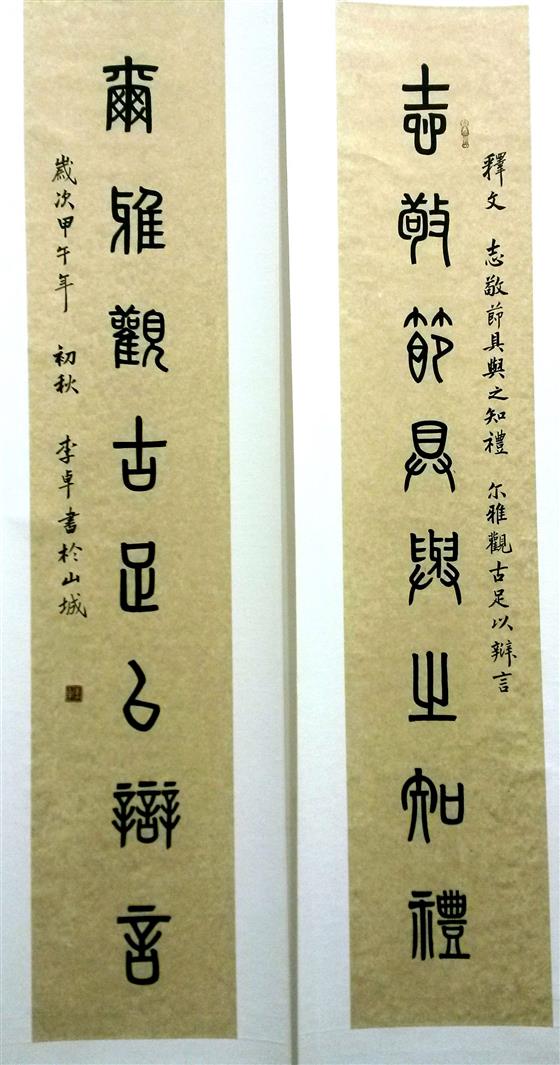 志敬節具與之知禮
釋文 志敬節具與之知禮 尔雅觀古足以辯言
爾雅觀古足以辯言
歲次甲午年 初秋 李卓書於山城